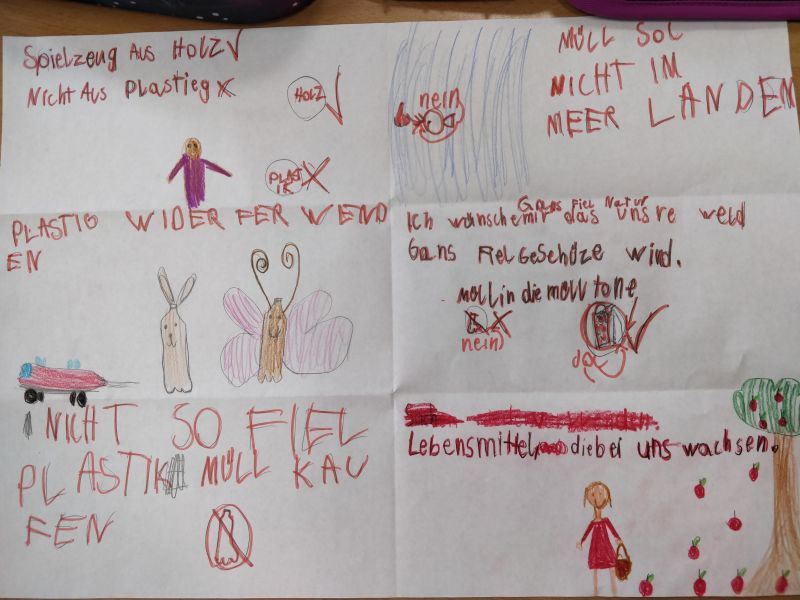 Spielzeug Aus HOLZ
Nicht Aus Plastieg
HOLZ
PLAST
IK
MÜLL SOL
NICHT IM
MEER LANDEN
nein
PLASTIG WIDER FER WEND
EN
Gans Fiel Natur
Ich wünsche mir das Unsre weld
Gans FielGeschüze wird.
Müll in die müll tone
nein
da
NICHT SO FIEL
PLASTIK MÜLL KAU
FEN
Lebensmittel die bei uns wachsen.